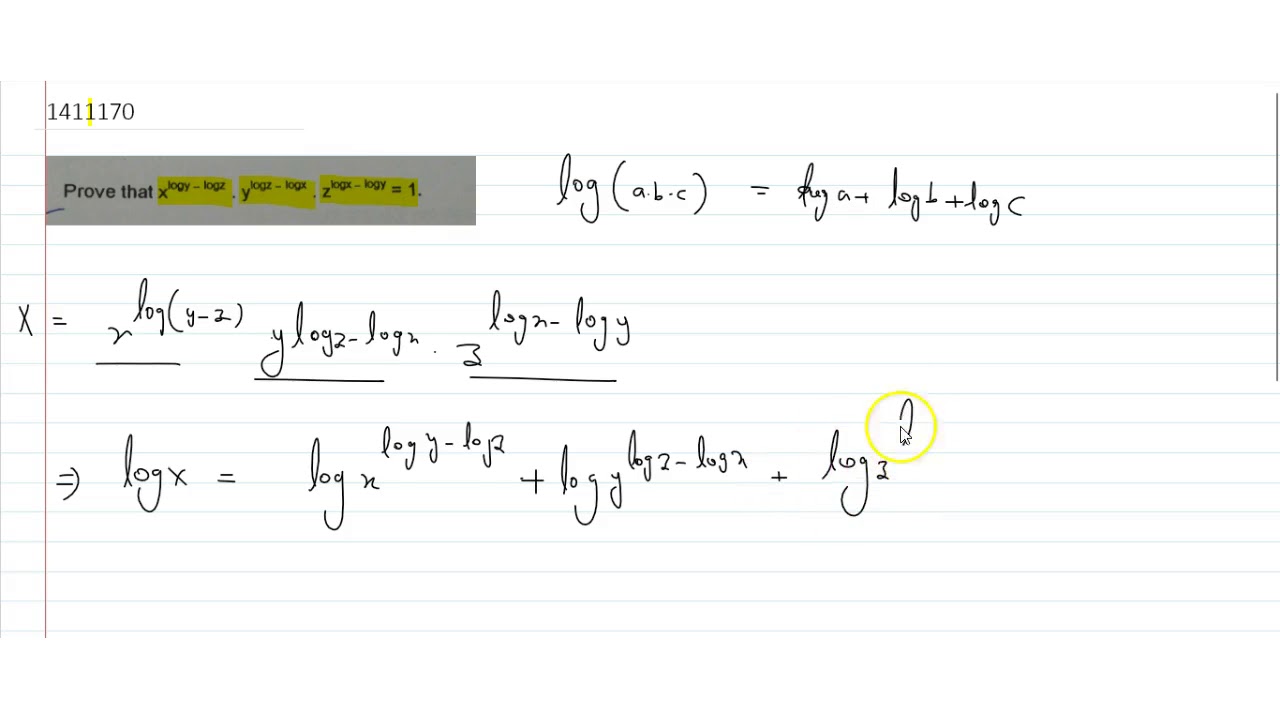 1411170
Prove that x^logy – logz . y^logz – logx . z^logx – logy = 1.
log(a.b.c) = log a + log b + log c
X = x^log(y-z) y^logz - logx . z^logx - logy
⇒ log X = log x^log y - log z + log y^log z - log x + log z^l